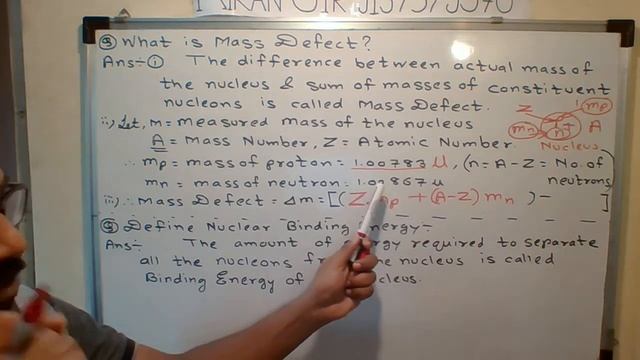 ③ What is Mass Defect?
Ans÷① The difference between actual mass of
the nucleus & sum of masses of constituent
nucleons is called Mass Defect.
Z mp
ii) Let, m = measured mass of the nucleus
mn n+ A
A = Mass Number, Z = Atomic Number.
Nucleus
∴ mp = mass of proton = 1.00783 μ, (n = A - Z = No. of
mn = mass of neutron = 1.00867 μ neutrons)
iii) ∴ Mass Defect = Δm = [(Z mp + (A-Z) mn ) - ]
Define Nuclear Binding Energy÷
Ans÷ The amount of energy required to separate
all the nucleons from the nucleus is called
Binding Energy of nucleus.